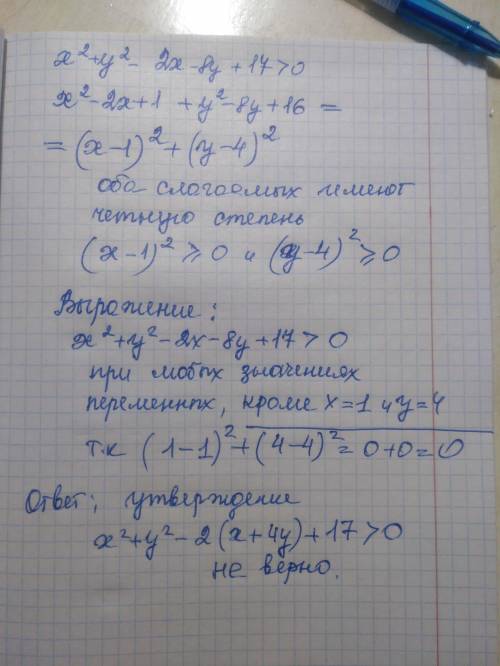 x²+y²- 2x-8y+17>0
x²-2x+1 +y²-8y+16 =
= (x-1)²+(y-4)²
оба слагаемых имеют
четную степень
(x-1)²≥0 и (y-4)²≥0
Выражение:
x²+y²-2x-8y+17>0
при любых значениях
переменных, кроме x=1 и y=4
т.к (1-1)²+(4-4)²=0+0=0
Ответ: утверждение
x²+y²-2(x+4y)+17>0
не верно.